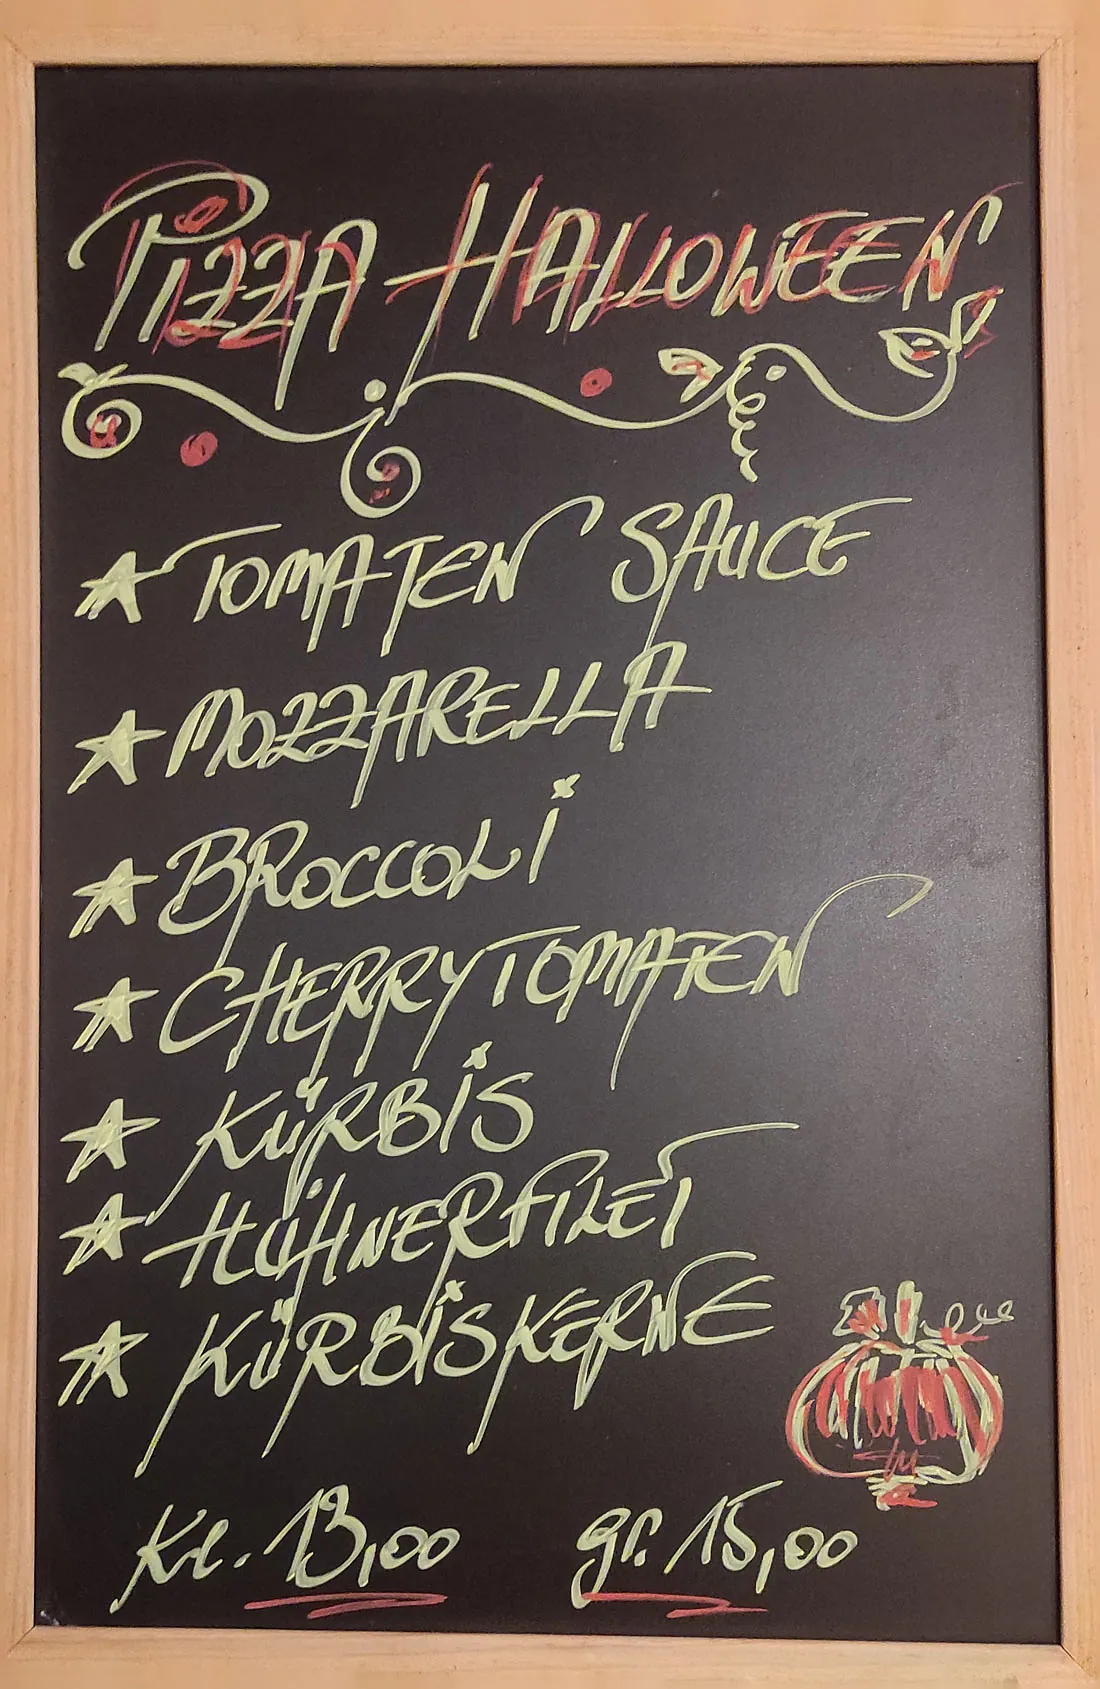 PIZZA HALLOWEEN
TOMATEN SAUCE
MOZZARELLA
BROCCOLI
CHERRYTOMATEN
KÜRBIS
HÜHNERFILET
KÜRBISKERNE
Kl. 13,00 gr. 15,00